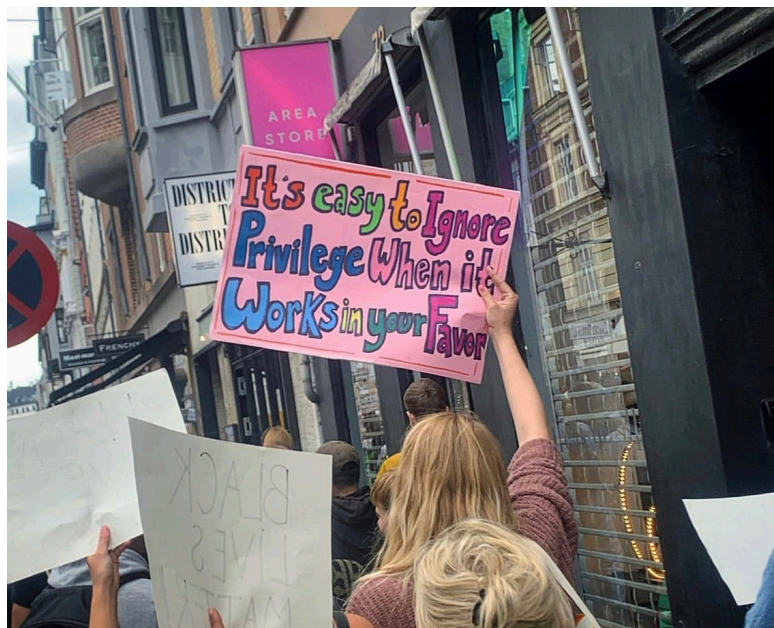 72
AREA
STORE
DISTRICT
T
DISTRI
It's easy to Ignore
Privilege When it
Works in your Favor
FRENCHY
BLACK
LIVES
MATTER